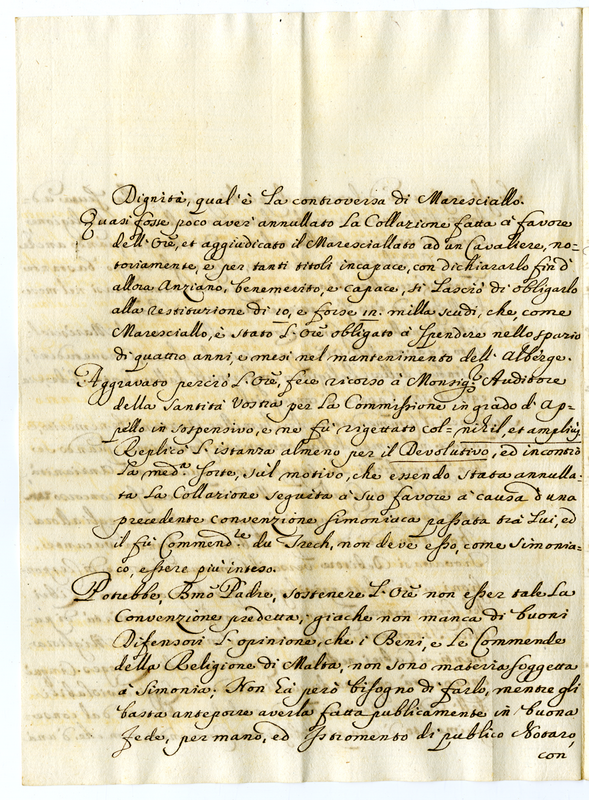 Dignità, qual'è La controversa di Maresciallo.
Quasi fosse poco aver annullato La Collazione fatta à favore
dell'Orē, et aggiudicato il Maresciallato ad un Cavaliere, no-
toriamente, e per tanti titoli incapace, con dichiararlo fin d'
allora Anziano, benemerito, e capace, si lasciò di obligarlo
alla restituzione di 10, e forse 12. milla scudi, che, come
Maresciallo, è stato L'Orē obligato à spendere nello spazio
di quattro anni, e mesi nel mantenimento dell'Alberge.
Aggravato perciò L'Orē, fece ricorso à Monsigr. Auditore
della Santità Vostra per La Commissione in grado d'Ap-
pello in sospensivo, e ne fù rigettato col-nihil, et amplius
Replicò L'istanza almeno per il Devolutivo, ed incontrò
La meda. sorte, sul motivo, che essendo stata annulla-
ta La Collazione seguita à suo favore à causa d'una
precedente convenzione simoniaca passata trà Lui, ed
il fù Commendre. du Trech, non deve esso, come Simonia-
co, essere più inteso.
Potrebbe, Bmo Padre, sostenere L'Orē non esser tale La
Convenzione predetta; giache non manca di buoni
Difensori L'opinione, che i Beni, e Le Commende
della Religione di Malta, non sono materia soggetta
à Simonia; Non hà però bisogno di farlo, mentre gli
basta anteporre averla fatta publicamente in buona
fede, per mano, ed Istromento di publico Notaro,
con